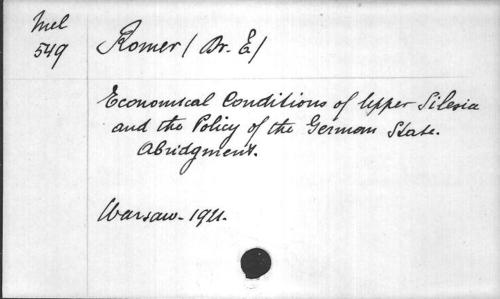 Mel
549
Romer / Dr. E /
Economical Conditions of Upper Silesia
and the Policy of the German State.
Abridgment.
Warsaw. 1921.